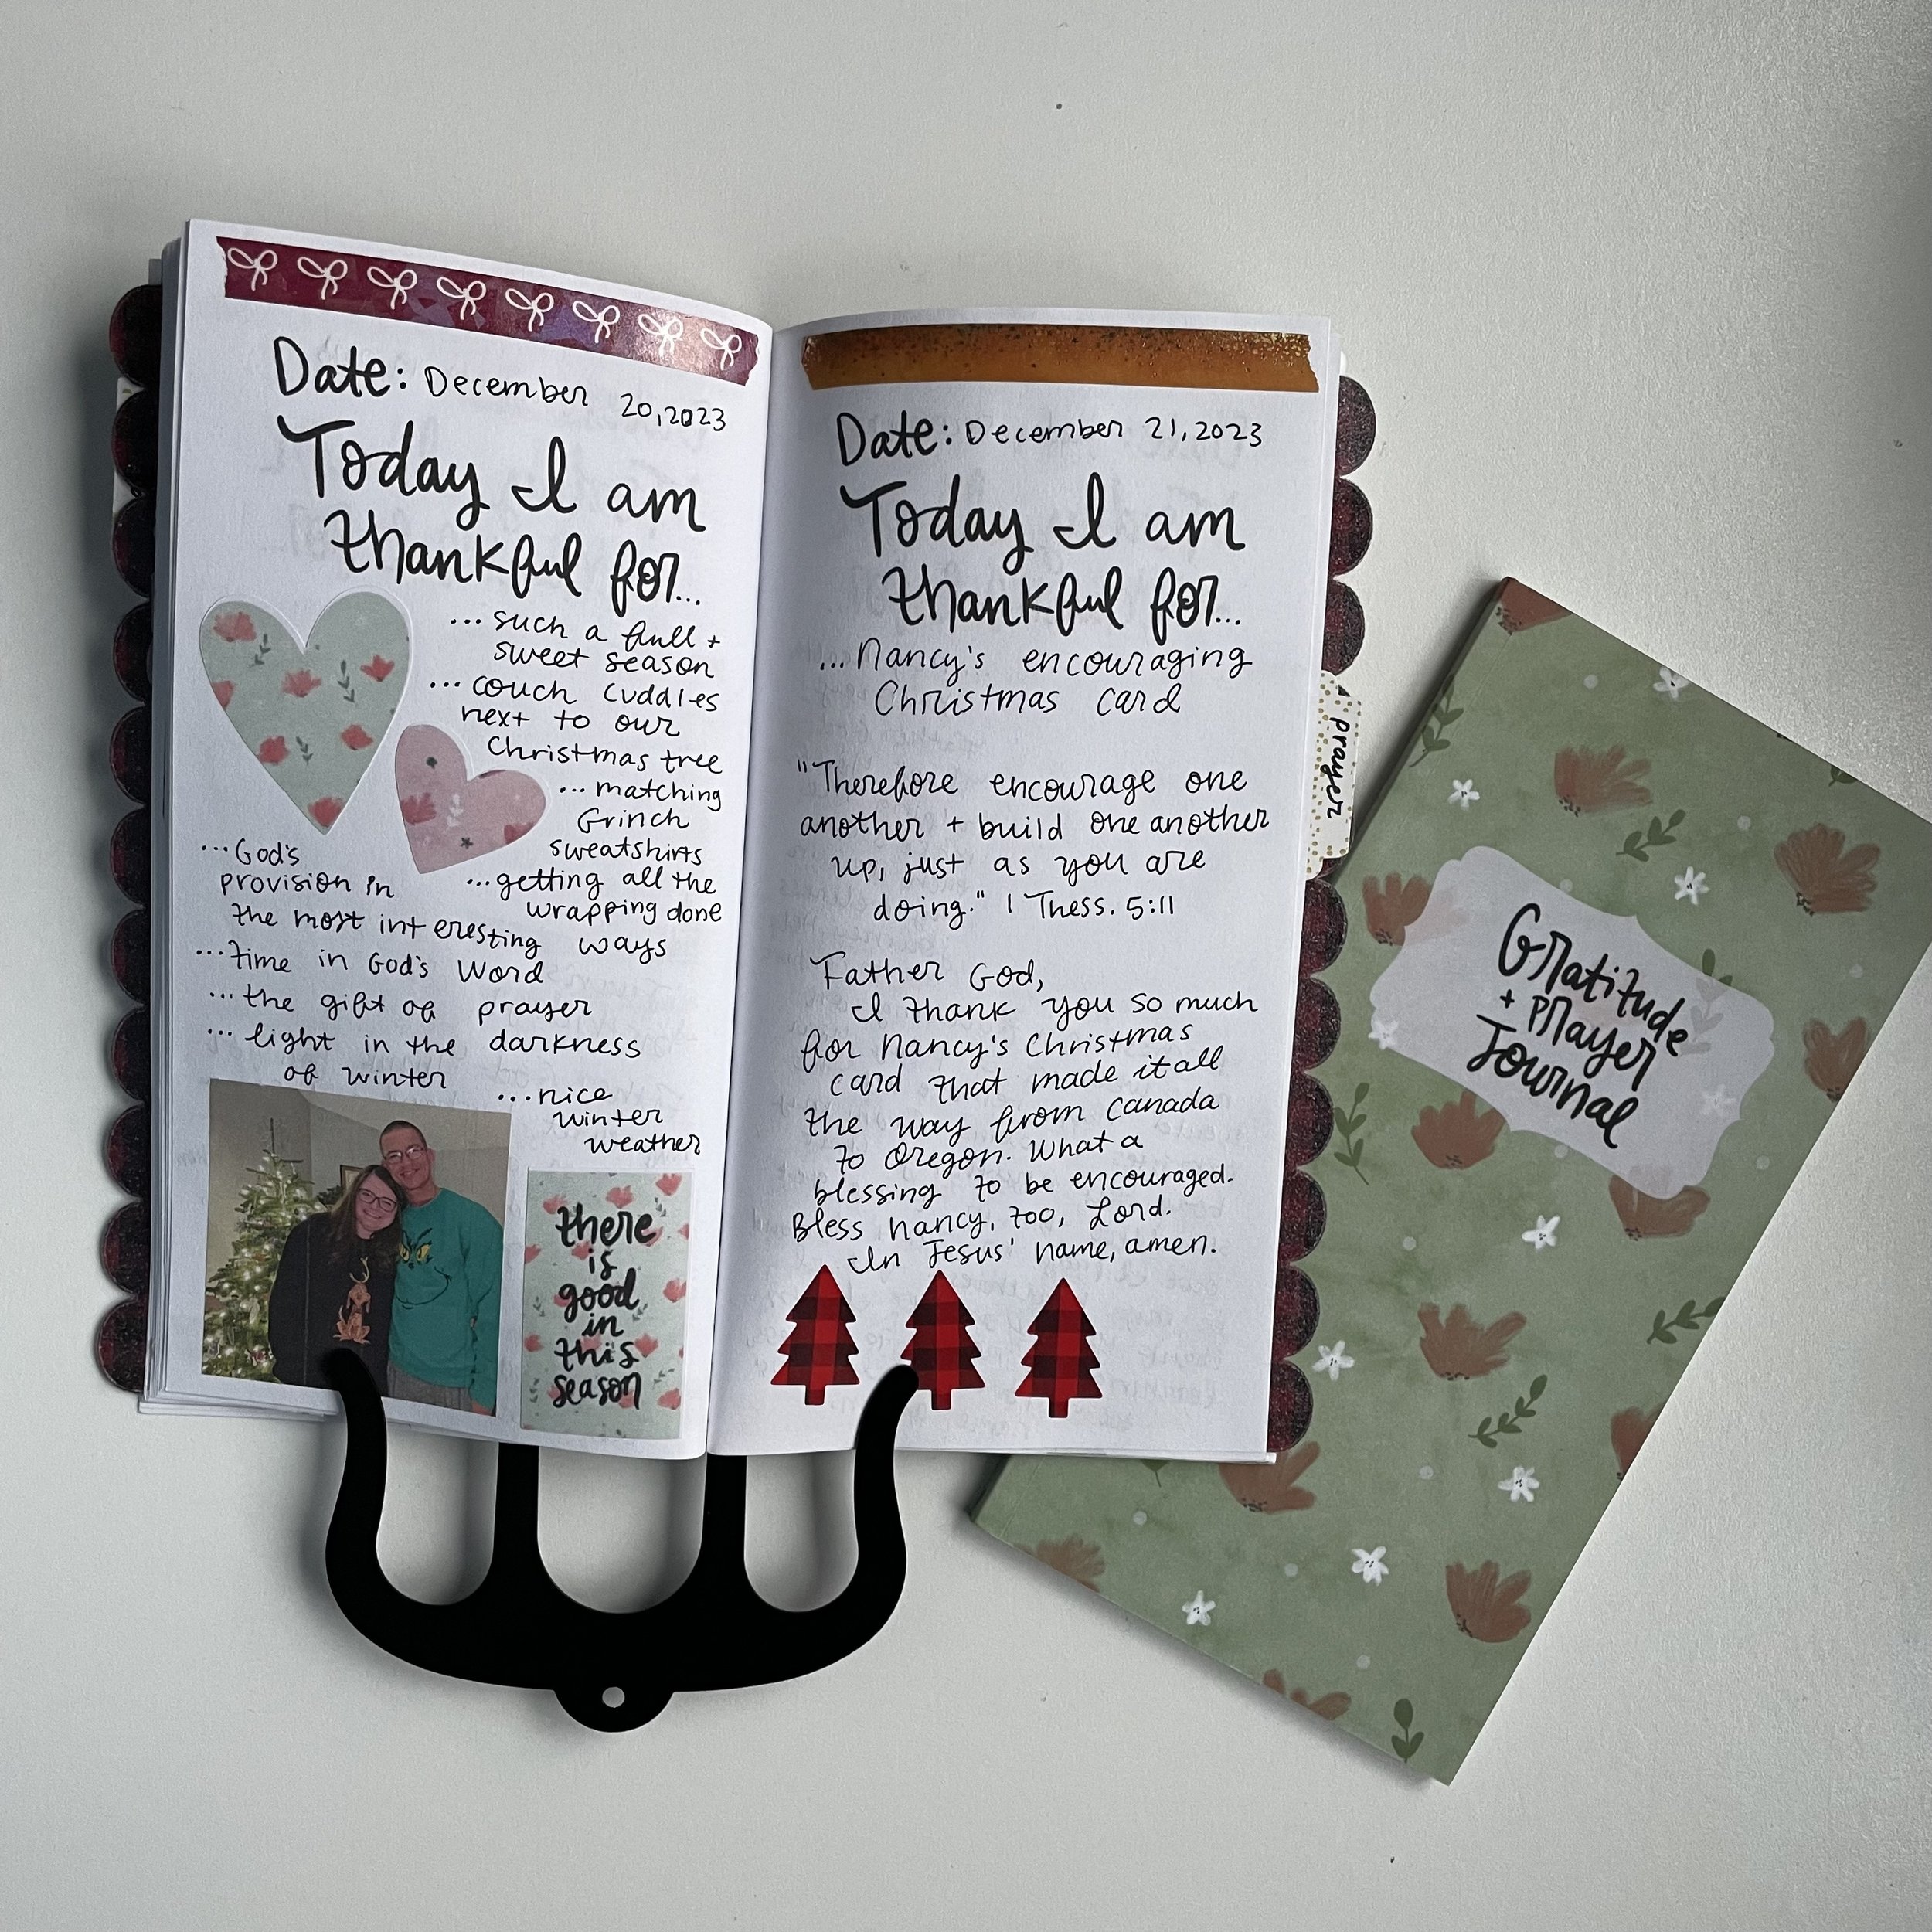 Date: December 20, 2023
Today I am
thankful for...
... such a full +
sweet season
... couch cuddles
next to our
Christmas tree
... matching
Grinch
sweatshirts
... getting all the
wrapping done
... God's
provision in
the most interesting ways
... time in God's Word
... the gift of prayer
... light in the darkness
of winter
... nice
winter
weather
there
is
good
in
this
season
Date: December 21, 2023
Today I am
thankful for...
... Nancy's encouraging
Christmas card
"Therefore encourage one
another + build one another
up, just as you are
doing." 1 Thess. 5:11
Father God,
I thank you so much
for Nancy's Christmas
card that made it all
the way from Canada
to Oregon. What a
blessing to be encouraged.
Bless Nancy, too, Lord.
In Jesus' name, amen.
prayer
Gratitude
+ Prayer
Journal